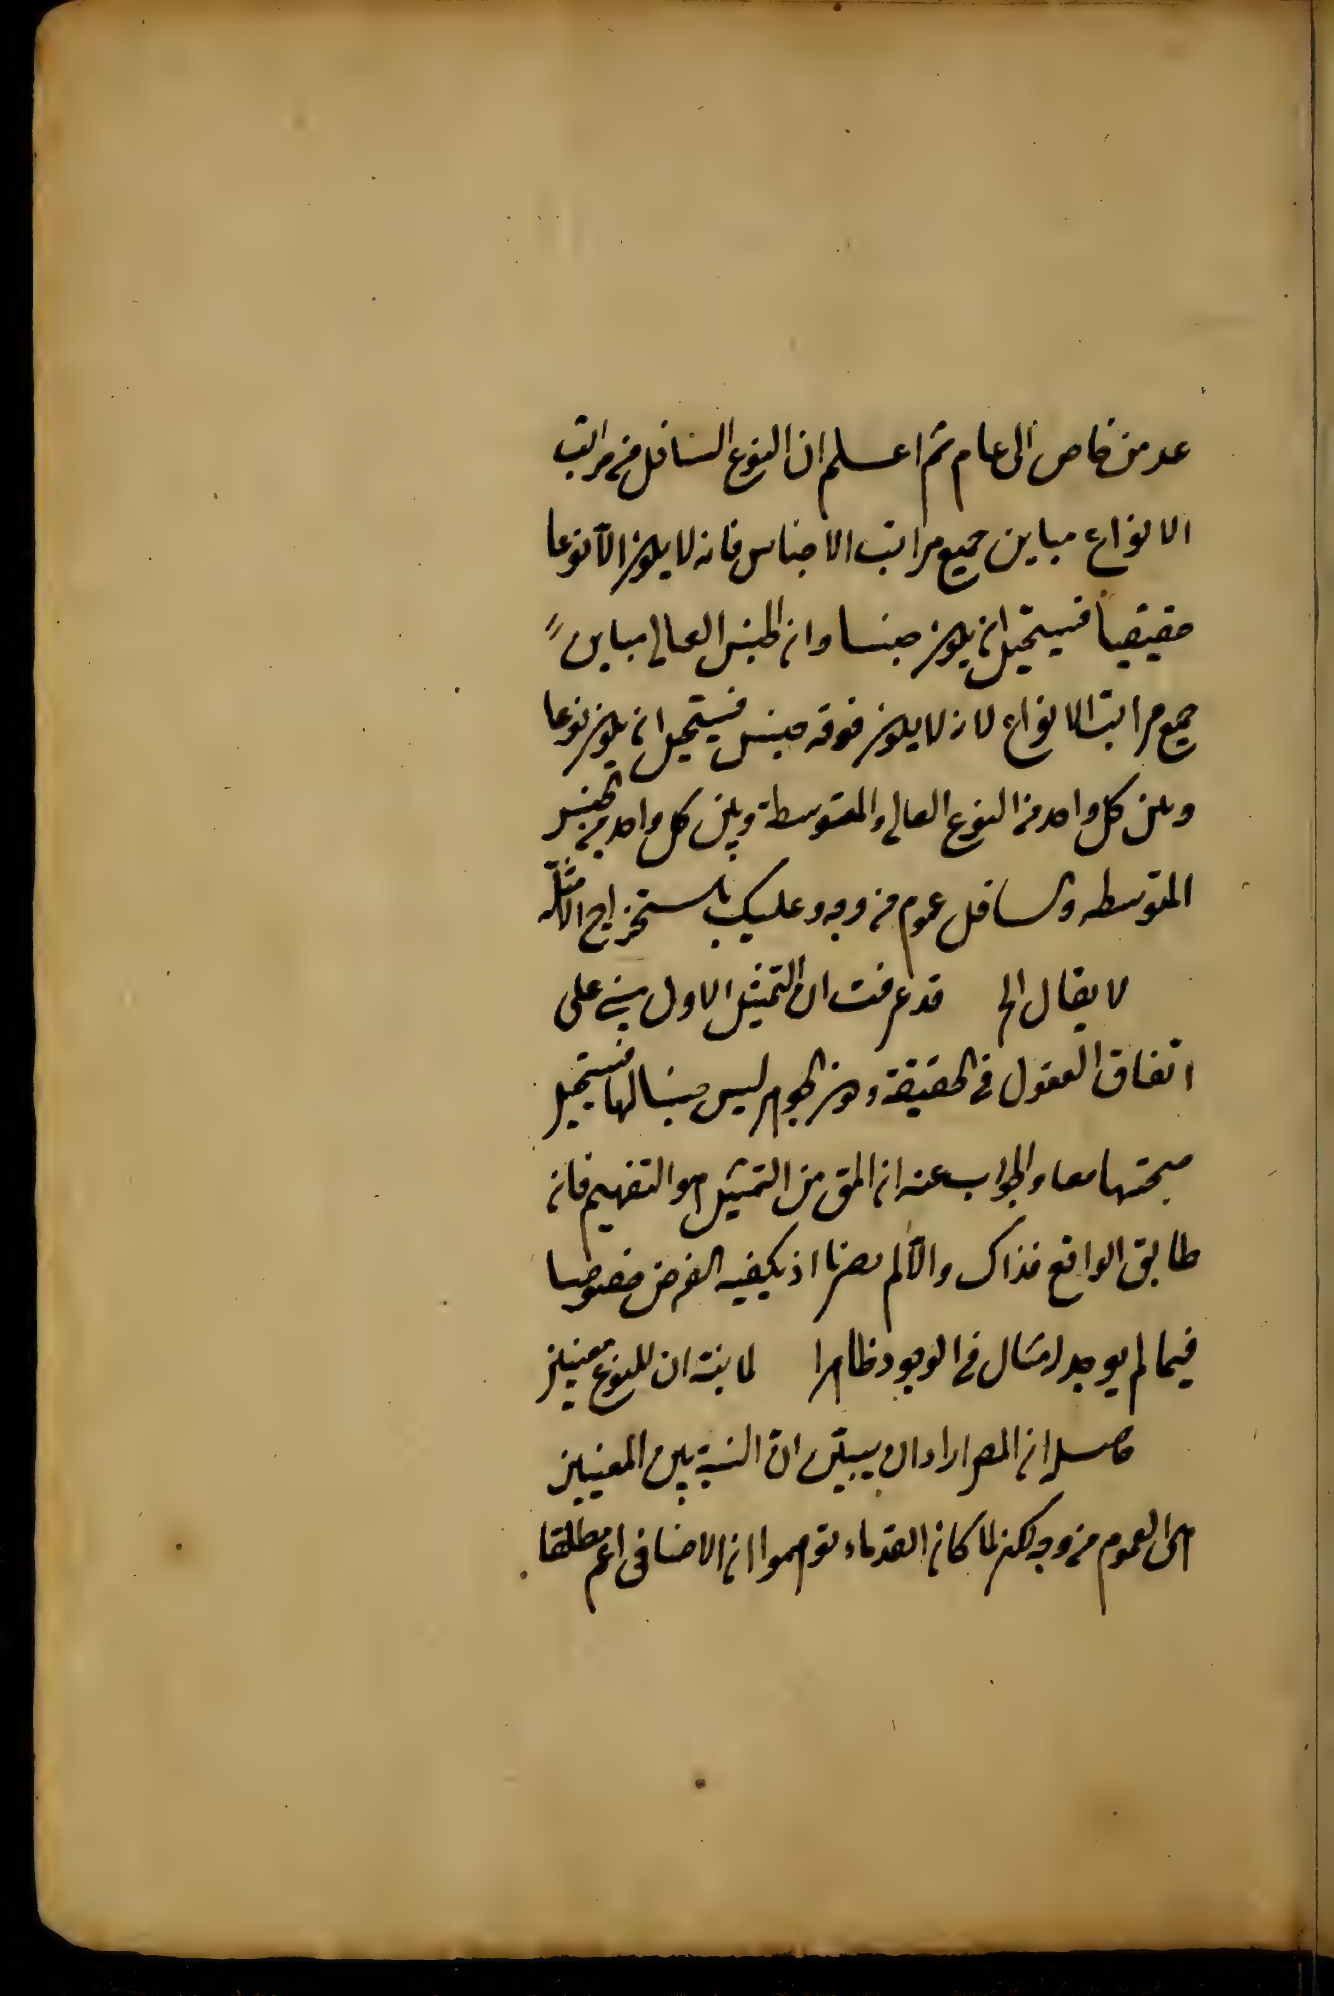 عد من خاص الى عام ثم اعلم ان النوع السافل من مراتب
الانواع مباين جميع مراتب الاجناس فانه لا يكون الّا نوعا
حقيقياً فيستحيل ان يكون جنسا وان الجنس العالى مباين
جميع مراتب الانواع لانه لا يكون فوقه جنس فيستحيل ان يكون نوعا
وبين كل واحد من النوع العالى والمتوسط وبين كل واحد من الجنس
المتوسط والسافل عموم من وجه وعليك باستخراج الامثلة
لا يقال الخ قد عرفت ان التمثيل الاول مبنى على
اتفاق العقول فى الحقيقة وكون الجوهر ليس جنسا لها فيستحيل
صحتهما معا والجواب عنه ان المق من التمثيل هو التفهيم فان
طابق الواقع فذاك والّا لم يضرنا اذ يكفيه الفرض خصوصا
فيما لم يوجد له مثال فى الوجود ظاهرا لما نبه ان للنوع معنيين
حاصله ان المص اراد ان يبيّن انّ النسبة بين المعنيين
هى العموم من وجه لكن لما كان القدماء توهموا ان الاضافى اعم مطلقا